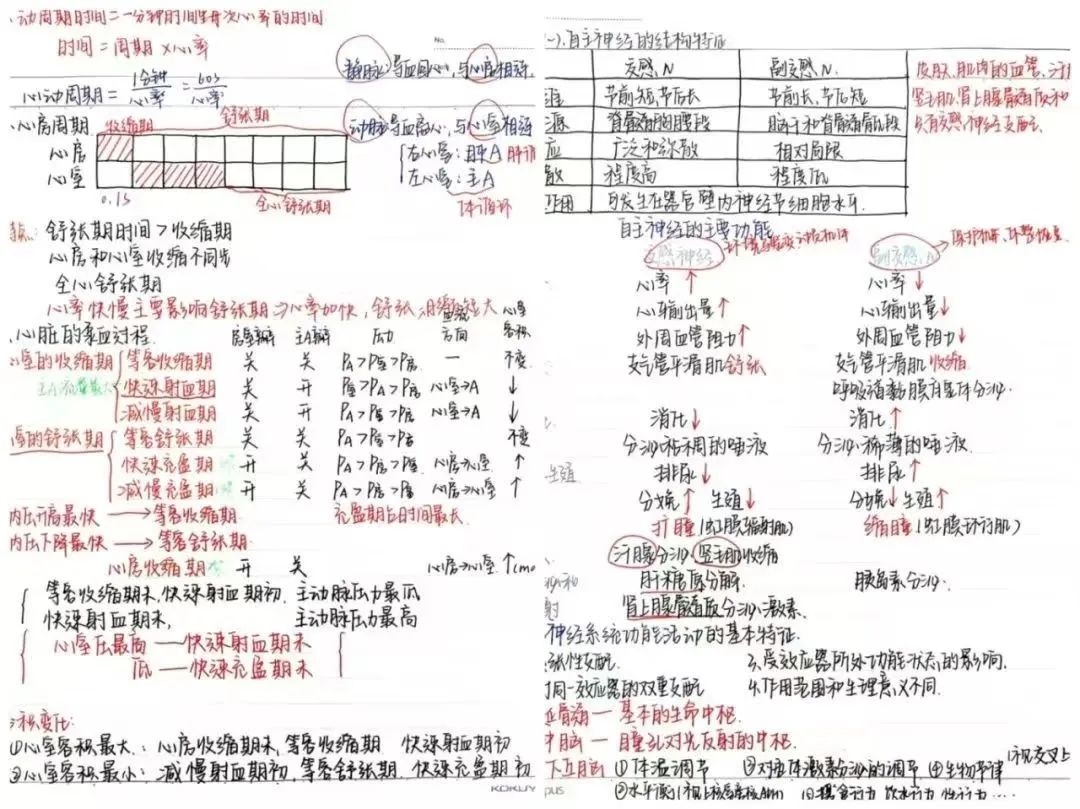 动周期时间=一分钟时间每次心率的时间
时间=周期×心率
心动周期=1分钟/心率=60s/心率
静脉:导血回心,与心房相连.
动脉:导血离心,与心室相连
右心室:肺A 肺循
左心室:主A
体循环
心房周期 收缩期 舒张期
心房
心室
0.1s 全心舒张期
特点:舒张期时间>收缩期
心房和心室收缩不同步
全心舒张期
心率快慢主要影响舒张期⇒心率加快,舒张期缩短大
心脏的泵血过程 房室瓣 主A瓣 压力 血流方向 心室容积
心室的收缩期 等容收缩期 关 关 PA>P室>P房 — 不变
快速射血期 关 开 P室>PA>P房 心室→A ↓
减慢射血期 关 开 PA>P室>P房 心室→A ↓
室的舒张期 等容舒张期 关 关 PA>P室>P房 不变
快速充盈期 开 关 PA>P房>P室 心房→心室 ↑
减慢充盈期 开 关 PA>P房>P室 心房→心室 ↑
内压升高最快→等容收缩期 充盈期占时间最大.
内压下降最快→等容舒张期
心房收缩期 开 关 心房→心室 ↑
等容收缩期末,快速射血期初 主动脉压力最低
快速射血期末, 主动脉压力最高
心室压最高——快速射血期末
低——快速充盈期末
容积变化:
①心室容积最大:心房收缩期末,等容收缩期 快速射血期初
②心室容积最小:减慢射血期初,等容舒张期.快速充盈期初
KOKUY
No.
(一).自主神经的结构特征
交感.N 副交感.N.
节前短,节后长 节前长,节后短
源 脊髓胸腰段 脑干和脊髓骶段
应 广泛和弥散 相对局限
散 程度高 程度低
作用 可发生在器官壁内神经节细胞水平.
皮肤、肌肉的血管,汗
竖毛肌.肾上腺髓质和
只有交感神经支配
自主神经的主要功能
交感神经 副交感.N
心率↑ 心率↓
心输出量↑ 心输出量↓
外周血管阻力↑ 外周血管阻力↓
支气管平滑肌舒张 支气管平滑肌收缩
呼吸道黏膜腺体分泌.
消化↓ 消化↑
分泌粘稠的唾液 分泌稀薄的唾液
生殖 排尿↓ 排尿↑
分娩↑ 生殖↓ 分娩↓生殖↑
扩瞳(虹膜辐射肌) 缩瞳(虹膜环行肌)
汗腺分泌,竖毛肌收缩
肝糖原分解. 胰岛素分泌.
肾上腺髓质分泌激素.
神经系统功能活动的基本特征.
紧张性支配. 3.受效应器所处功能状态的影响.
对同一效应器的双重支配 4.作用范围和生理意义不同.
延骨遀一基本的生命中枢.
中脑一瞳孔对光反射的中枢.
下丘脑 ①体温调节 ③对腺体激素分泌的调节 ④生物节律
pus